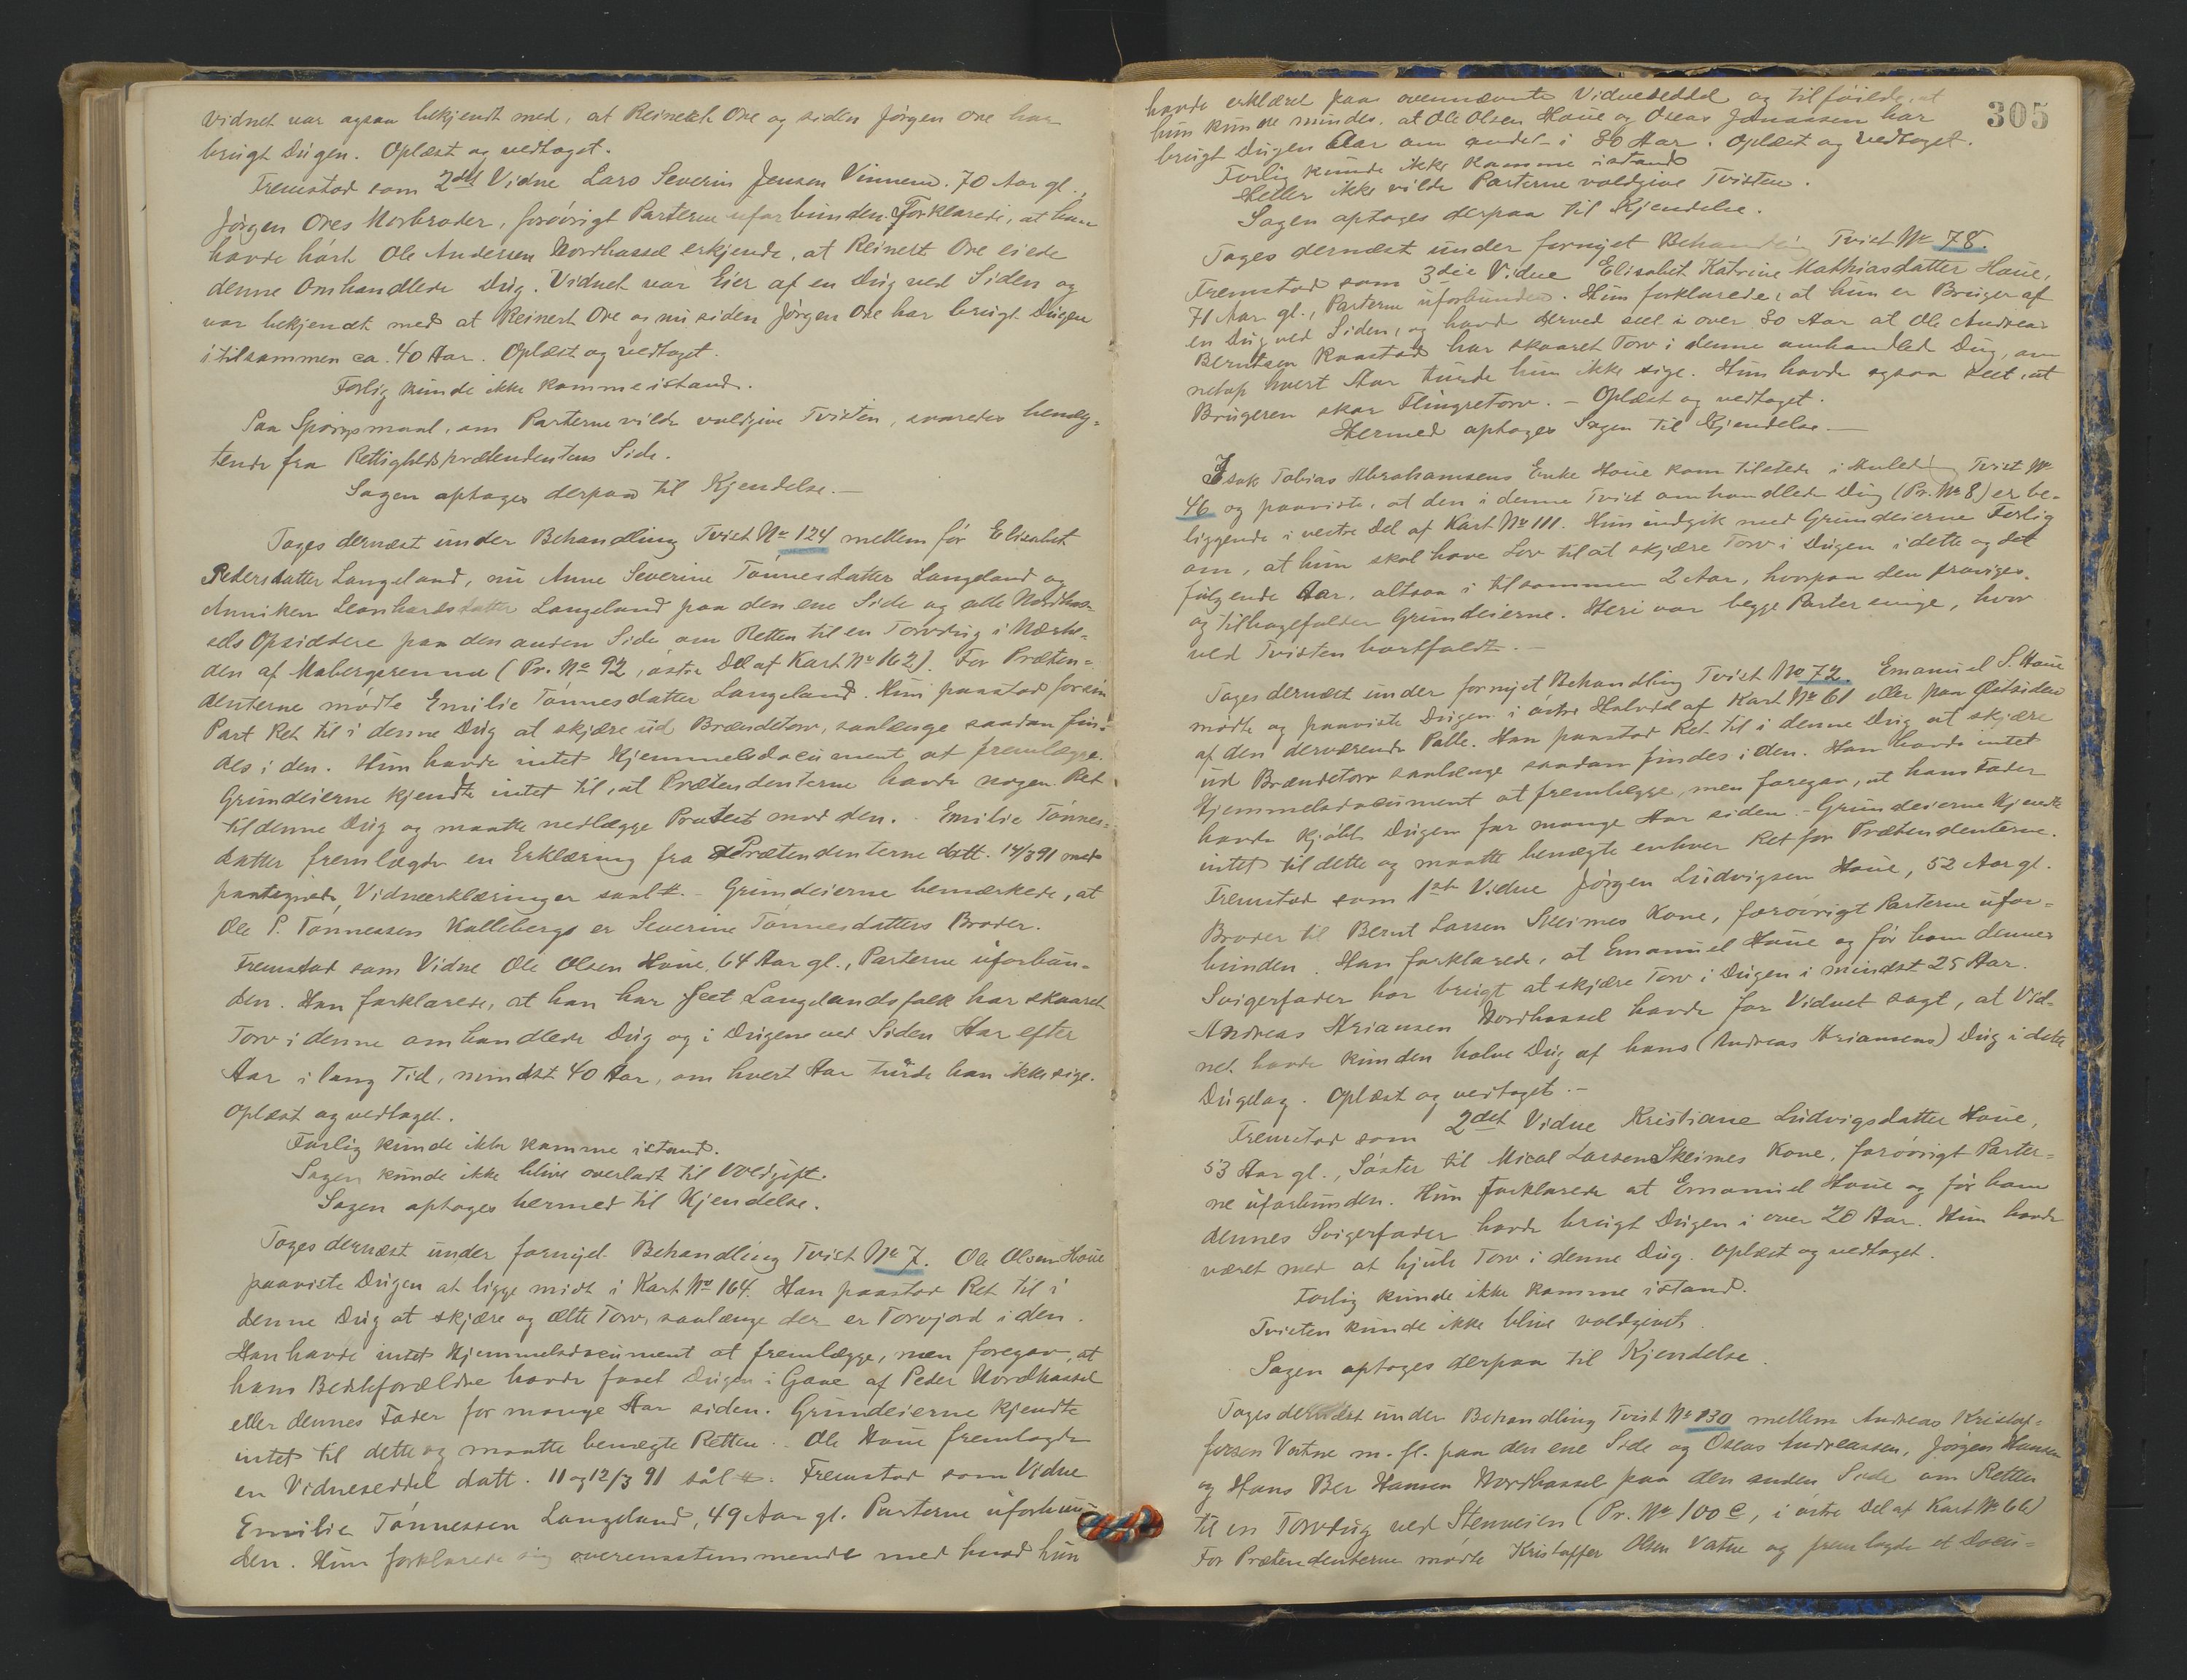 Vidnet var ogsaa bekjendt med, at Reinert Ore og siden Jørgen Ore har
brugt Dugen. Oplæst og vedtaget.
Fremstod som 2det Vidne Lars Severin Jensen Vinnem. 70 Aar gl.,
Jørgen Ores Morbroder, forøvrigt Parterne uforbunden. Forklarede, at han
havde hørt Ole Andersen Nordhassel erkjende, at Reinert Ore eiede
denne omhandlede Dug. Vidnet var Eier af en Dug ved Siden og
var bekjendt med at Reinert Ore og nu siden Jørgen Ore har brugt Dugen
i tilsammen ca. 40 Aar. Oplæst og vedtaget.
Forlig kunde ikke komme istand.
Paa Spørgsmaal, om Parterne vilde voldgive Tvisten, svaredes benæg-
tende fra Rettighedsprætendentens Side.
Sagen optoges derpaa til Kjendelse.—
Toges dernæst under Behandling Tvist No 124 mellem før Elisabet
Pedersdatter Langeland, nu Anne Severine Tønnesdatter Langeland og
Anniken Leonhardsdatter Langeland paa den ene Side og alle Nordhas-
sels Opsiddere paa den anden Side om Retten til en Torvdug i Nærhe-
den af Mabergsrenna (Pr. No 92, østre Del af Kart No 162). For Præten-
denterne mødte Emilie Tønnesdatter Langeland. Hun paastod for sin
Part Ret til i denne Dug at skjære ud Brændetorv, saalænge saadan fin-
des i den. Hun havde intet Hjemmelsdocument at fremlægge.
Grundeierne kjendte intet til, at Prætendenterne havde nogen Ret
til denne Dug og maatte nedlægge Protest mod den. - Emilie Tønnes-
datter fremlagde en Erklæring fra Prætendenterne datt. 14/3 91 med
paategnede Vidneerklæringer saal #. - Grundeierne bemærkede, at
Ole P. Tønnessen Kallebergs er Severine Tønnesdatters Broder.
Fremstod som Vidne Ole Olsen Haue, 64 Aar gl., Parterne uforbun-
den. Han forklarede, at han har seet Langelandsfolk har skaaret
Torv i denne omhandlede Dug og i Dugene ved Siden Aar efter
Aar i lang Tid, mindst 40 Aar, om hvert Aar turde han ikke sige.
Oplæst og vedtaget.
Forlig kunde ikke komme istand.
Sagen kunde ikke blive overladt til Voldgift.
Sagen optoges hermed til Kjendelse.
Toges dernæst under fornyet Behandling Tvist No 7. Ole Olsen Haue
paaviste Dugen at ligge midt i Kart No 164. Han paastod Ret til i
denne Dug at skjære og ælte Torv, saalænge der er Torvjord i den.
Han havde intet Hjemmelsdocument at fremlægge, men foregav, at
hans Bedsteforældre havde faaet Dugen i Gave af Peder Nordhassel
eller dennes Fader for mange Aar siden. Grundeierne kjendte
intet til dette og maatte benægte Retten. - Ole Haue fremlagde
en Vidneseddel datt. 11 og 12/3 91 sål #. Fremstod som Vidne
Emilie Tønnessen Langeland, 49 Aar gl. Parterne uforbun-
den. Hun forklarede sig overensstemmende med hvad hun
305
havde erklæret paa ovennævnte Vidneseddel og tilføiede, at
hun kunde mindes, at Ole Olsen Haue og Oseas Jonassen har
brugt Dugen Aar om andet i 30 Aar. Oplæst og vedtaget.
Forlig kunde ikke komme istand
Heller ikke vilde Parterne voldgive Tvisten.
Sagen optoges derpaa til Kjendelse.
Toges dernæst under fornyet Behandling Tvist No 78.
Fremstod som 3die Vidne Elisabet Katrine Mathiasdatter Haue,
71 Aar gl., Parterne uforbunden. Hun forklarede, at hun er Bruger af
en Dug ved Siden, og havde derved seet i over 30 Aar at Ole Andreas
Berntsen Kaastad har skaaret Torv i denne omhandlede Dug, om
netop hvert Aar turde hun ikke sige. Hun havde ogsaa seet, at
Brugeren skar Flingretorv. - Oplæst og vedtaget.
Hermed optoges Sagen til Kjendelse.—
Isak Tobias Abrahamsens Enke Haue kom tilstede i Anledning Tvist No
46 og paaviste, at den i denne Tvist omhandlede Dug (Pr. No 8) er be-
liggende i vestre Del af Kart No 111. Hun indgik med Grundeierne Forlig
om, at hun skal have Lov til at skjære Torv i Dugen i dette og det
følgende Aar, altsaa i tilsammen 2 Aar, hvorpaa den fraviges
og tilbagefalder Grundeierne. Heri var begge Parter enige, hvor-
ved Tvisten bortfaldt. -
Toges dernæst under fornyet Behandling Tvist No 72. Emanuel S. Haue
mødte og paaviste Dugen i østre Halvdel af Kart No 61 eller paa Østsiden
af den derværende Palle. Han paastod Ret til i denne Dug at skjære
ud Brændetorv saalænge saadan findes i den. Han havde intet
Hjemmelsdocument at fremlægge, men foregav, at hans Fader
havde kjøbt Dugen for mange Aar siden. - Grundeierne kjendte
intet til dette og maatte benægte enhver Ret for Prætendenterne.
Fremstod som 1ste Vidne Jørgen Ludvigsen Haue, 52 Aar gl.
Broder til Bernt Larsen Skeimes Kone, forøvrigt Parterne ufor-
bunden. Han forklarede, at Emanuel Haue og før ham dennes
Svigerfader har brugt at skjære Torv i Dugen i mindst 25 Aar.
Andreas Ariansen Nordhassel havde for Vidnet sagt, at Vid-
net havde kun den halve Dug af hans (Andreas Ariansens) Dug i dette
Dugelag. Oplæst og vedtaget. -
Fremstod som 2det Vidne Kristiane Ludvigsdatter Haue,
53 Aar gl., Søster til Mical Larsen Skeimes Kone, forøvrigt Parter-
ne uforbunden. Hun forklarede at Emanuel Haue og før ham
dennes Svigerfader havde brugt Dugen i over 20 Aar. Hun havde
været med at hjule Torv i denne Dug. Oplæst og vedtaget.
Forlig kunde ikke komme istand.
Tvisten kunde ikke blive voldgivet.
Sagen optoges derpaa til Kjendelse.
Toges dernæst under Behandling Tvist No 130 mellem Andreas Kristof-
fersen Vatne m. fl. paa den ene Side og Oseas Andreassen, Jørgen Hansen
og Hans Ber Hansen Nordhassel paa den anden Side om Retten
til en Torvdug ved Stenveien (Pr. No 100 c, i østre Del af Kart No 66)
For Prætendenterne mødte Kristoffer Olsen Vatne og fremlagde et Docu-